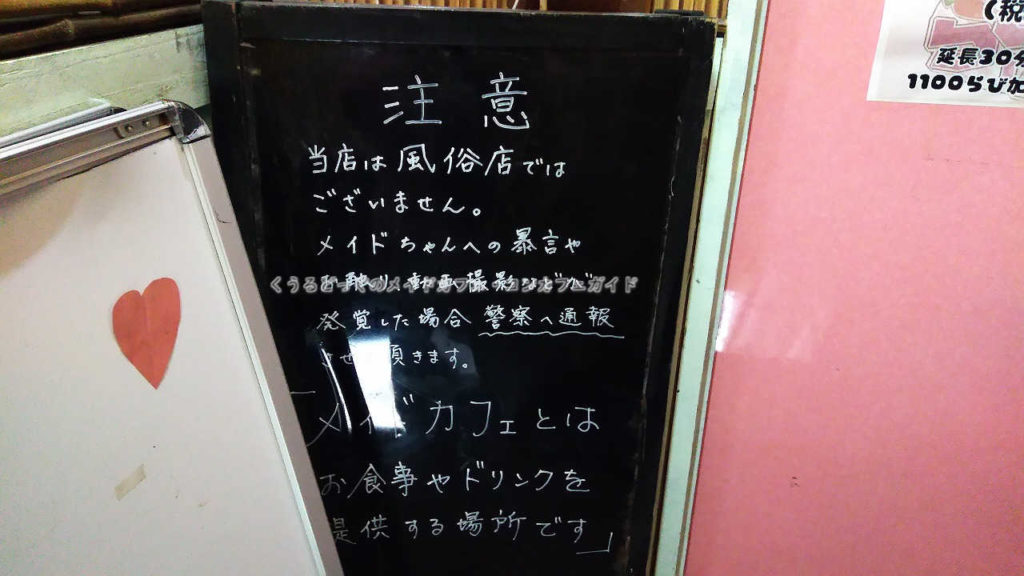 注意
当店は風俗店では
ございません。
メイドちゃんへの暴言や
動画撮影など
発覚した場合 警察へ通報
させ頂きます。
「メイドカフェとは
お食事やドリンクを
提供する場所です」
(税
延長30分
1100らび加